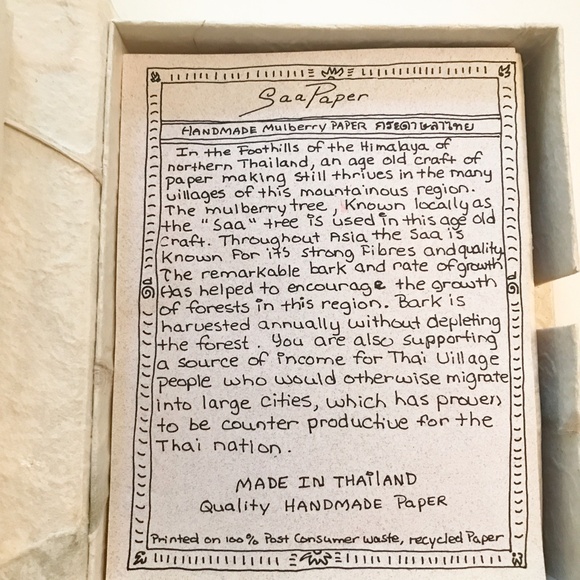 Saa Paper
HANDMADE Mulberry PAPER กระดาษสาไทย
In the Foothills of the Himalaya of
northern Thailand, an age old craft of
paper making still thrives in the many
villages of this mountainous region.
The mulberry tree, Known locally as
the "Saa" tree is used in this age old
craft. Throughout Asia the Saa is
Known For its strong Fibres and quality
The remarkable bark and rate of growth
Has helped to encourage the growth
of forests in this region. Bark is
harvested annually without depleting
the forest. You are also supporting
a source of income for Thai Village
people who would otherwise migrate
into large cities, which has proven
to be counter productive for the
Thai nation.
MADE IN THAILAND
Quality HANDMADE Paper
Printed on 100% Post Consumer waste, recycled Paper